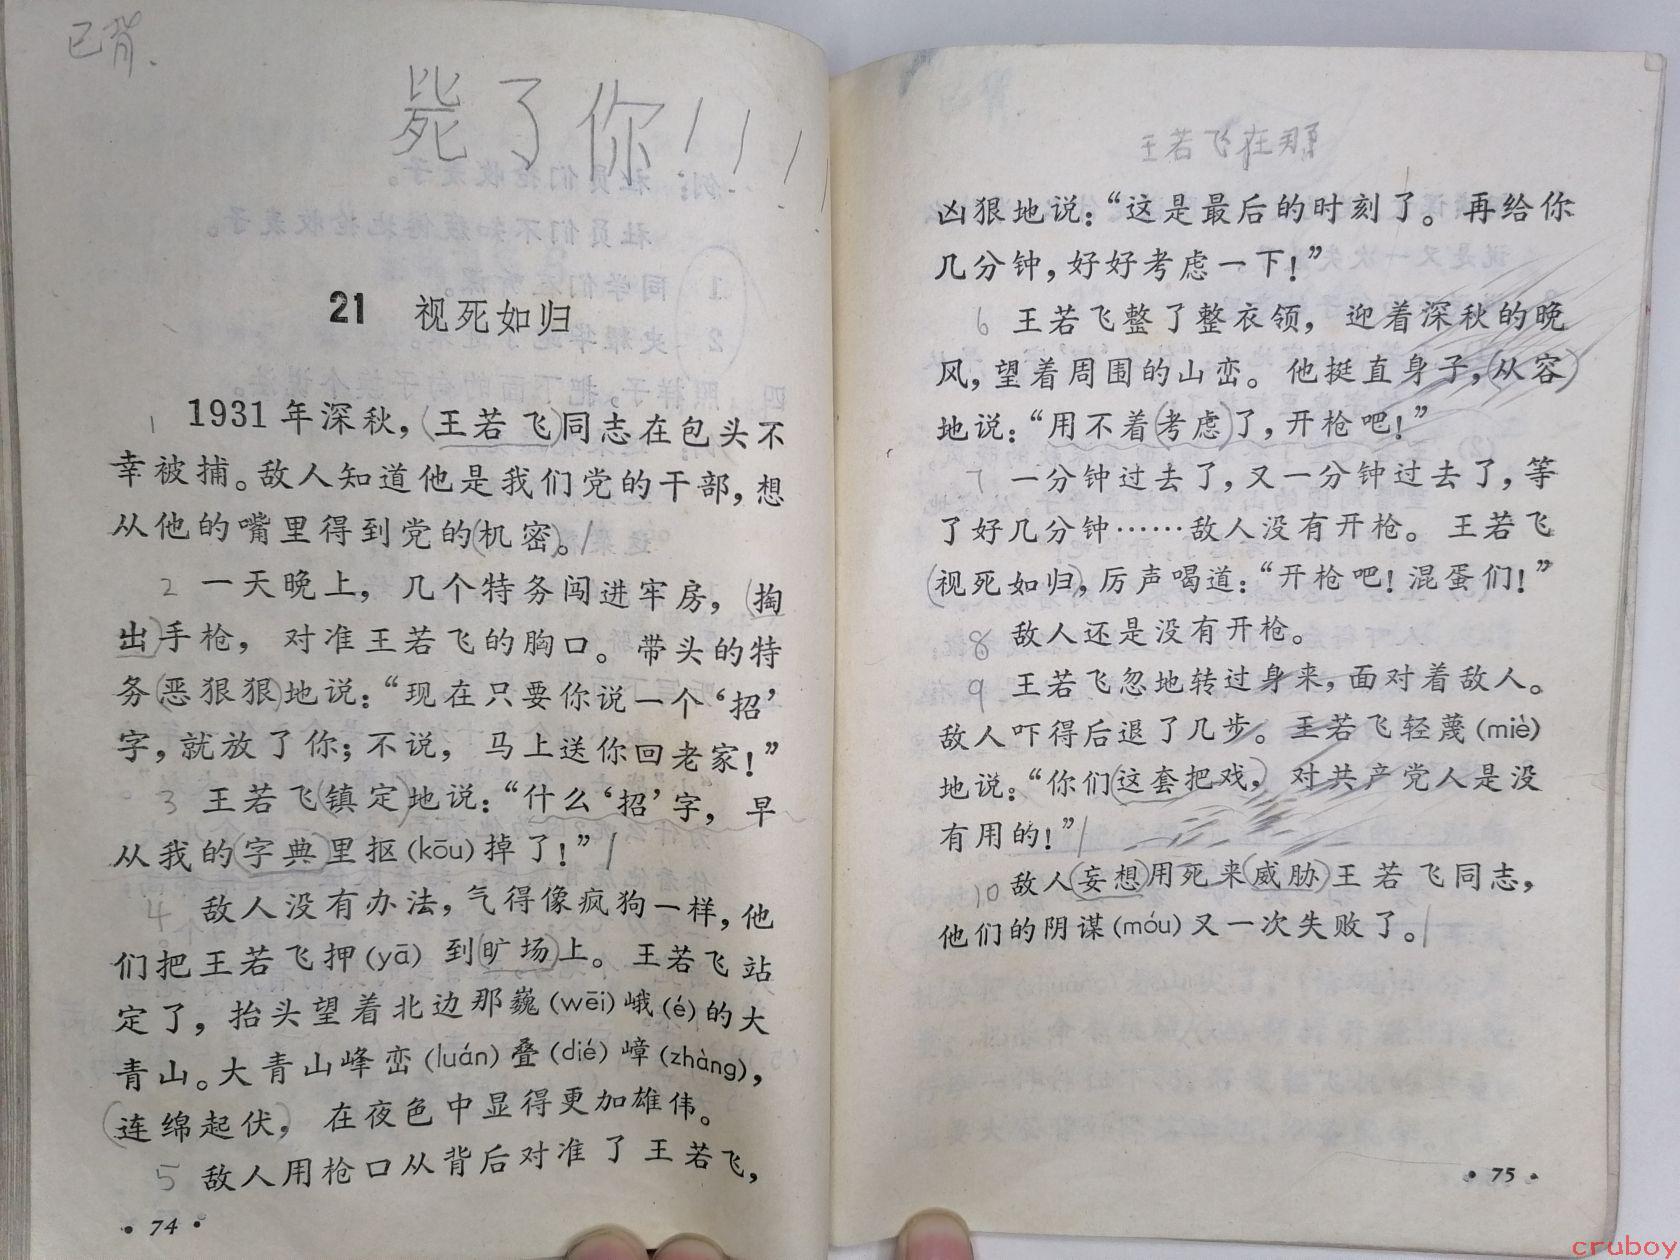 已背.
毙了你!!!!
21 视死如归
1931年深秋,王若飞同志在包头不
幸被捕。敌人知道他是我们党的干部,想
从他的嘴里得到党的机密。
2 一天晚上,几个特务闯进牢房,掏
出手枪,对准王若飞的胸口。带头的特
务恶狠狠地说:“现在只要你说一个‘招’
字,就放了你;不说,马上送你回老家!”
3 王若飞镇定地说:“什么‘招’字,早
从我的字典里抠(kōu)掉了!”
4 敌人没有办法,气得像疯狗一样,他
们把王若飞押(yā)到旷场上。王若飞站
定了,抬头望着北边那巍(wēi)峨(é)的大
青山。大青山峰峦(luán)叠(dié)嶂(zhàng),
连绵起伏,在夜色中显得更加雄伟。
5 敌人用枪口从背后对准了王若飞,
• 74 •
王若飞在那
凶狠地说:“这是最后的时刻了。再给你
几分钟,好好考虑一下!”
6 王若飞整了整衣领,迎着深秋的晚
风,望着周围的山峦。他挺直身子,从容
地说:“用不着考虑了,开枪吧!”
7 一分钟过去了,又一分钟过去了,等
了好几分钟……敌人没有开枪。王若飞
视死如归,厉声喝道:“开枪吧!混蛋们!”
8 敌人还是没有开枪。
9 王若飞忽地转过身来,面对着敌人。
敌人吓得后退了几步。王若飞轻蔑(miè)
地说:“你们这套把戏,对共产党人是没
有用的!”
10 敌人妄想用死来威胁王若飞同志,
他们的阴谋(móu)又一次失败了。
• 75 •
cruboy